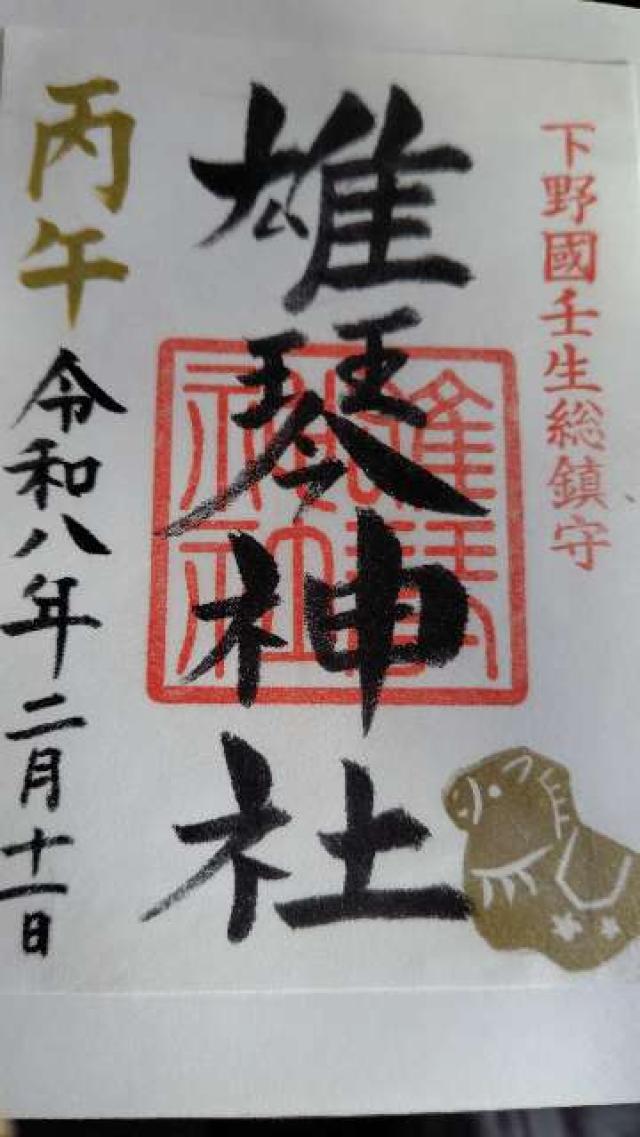 下野國壬生総鎮守
雄琴神社
雄琴神社
丙午
令和八年二月十一日